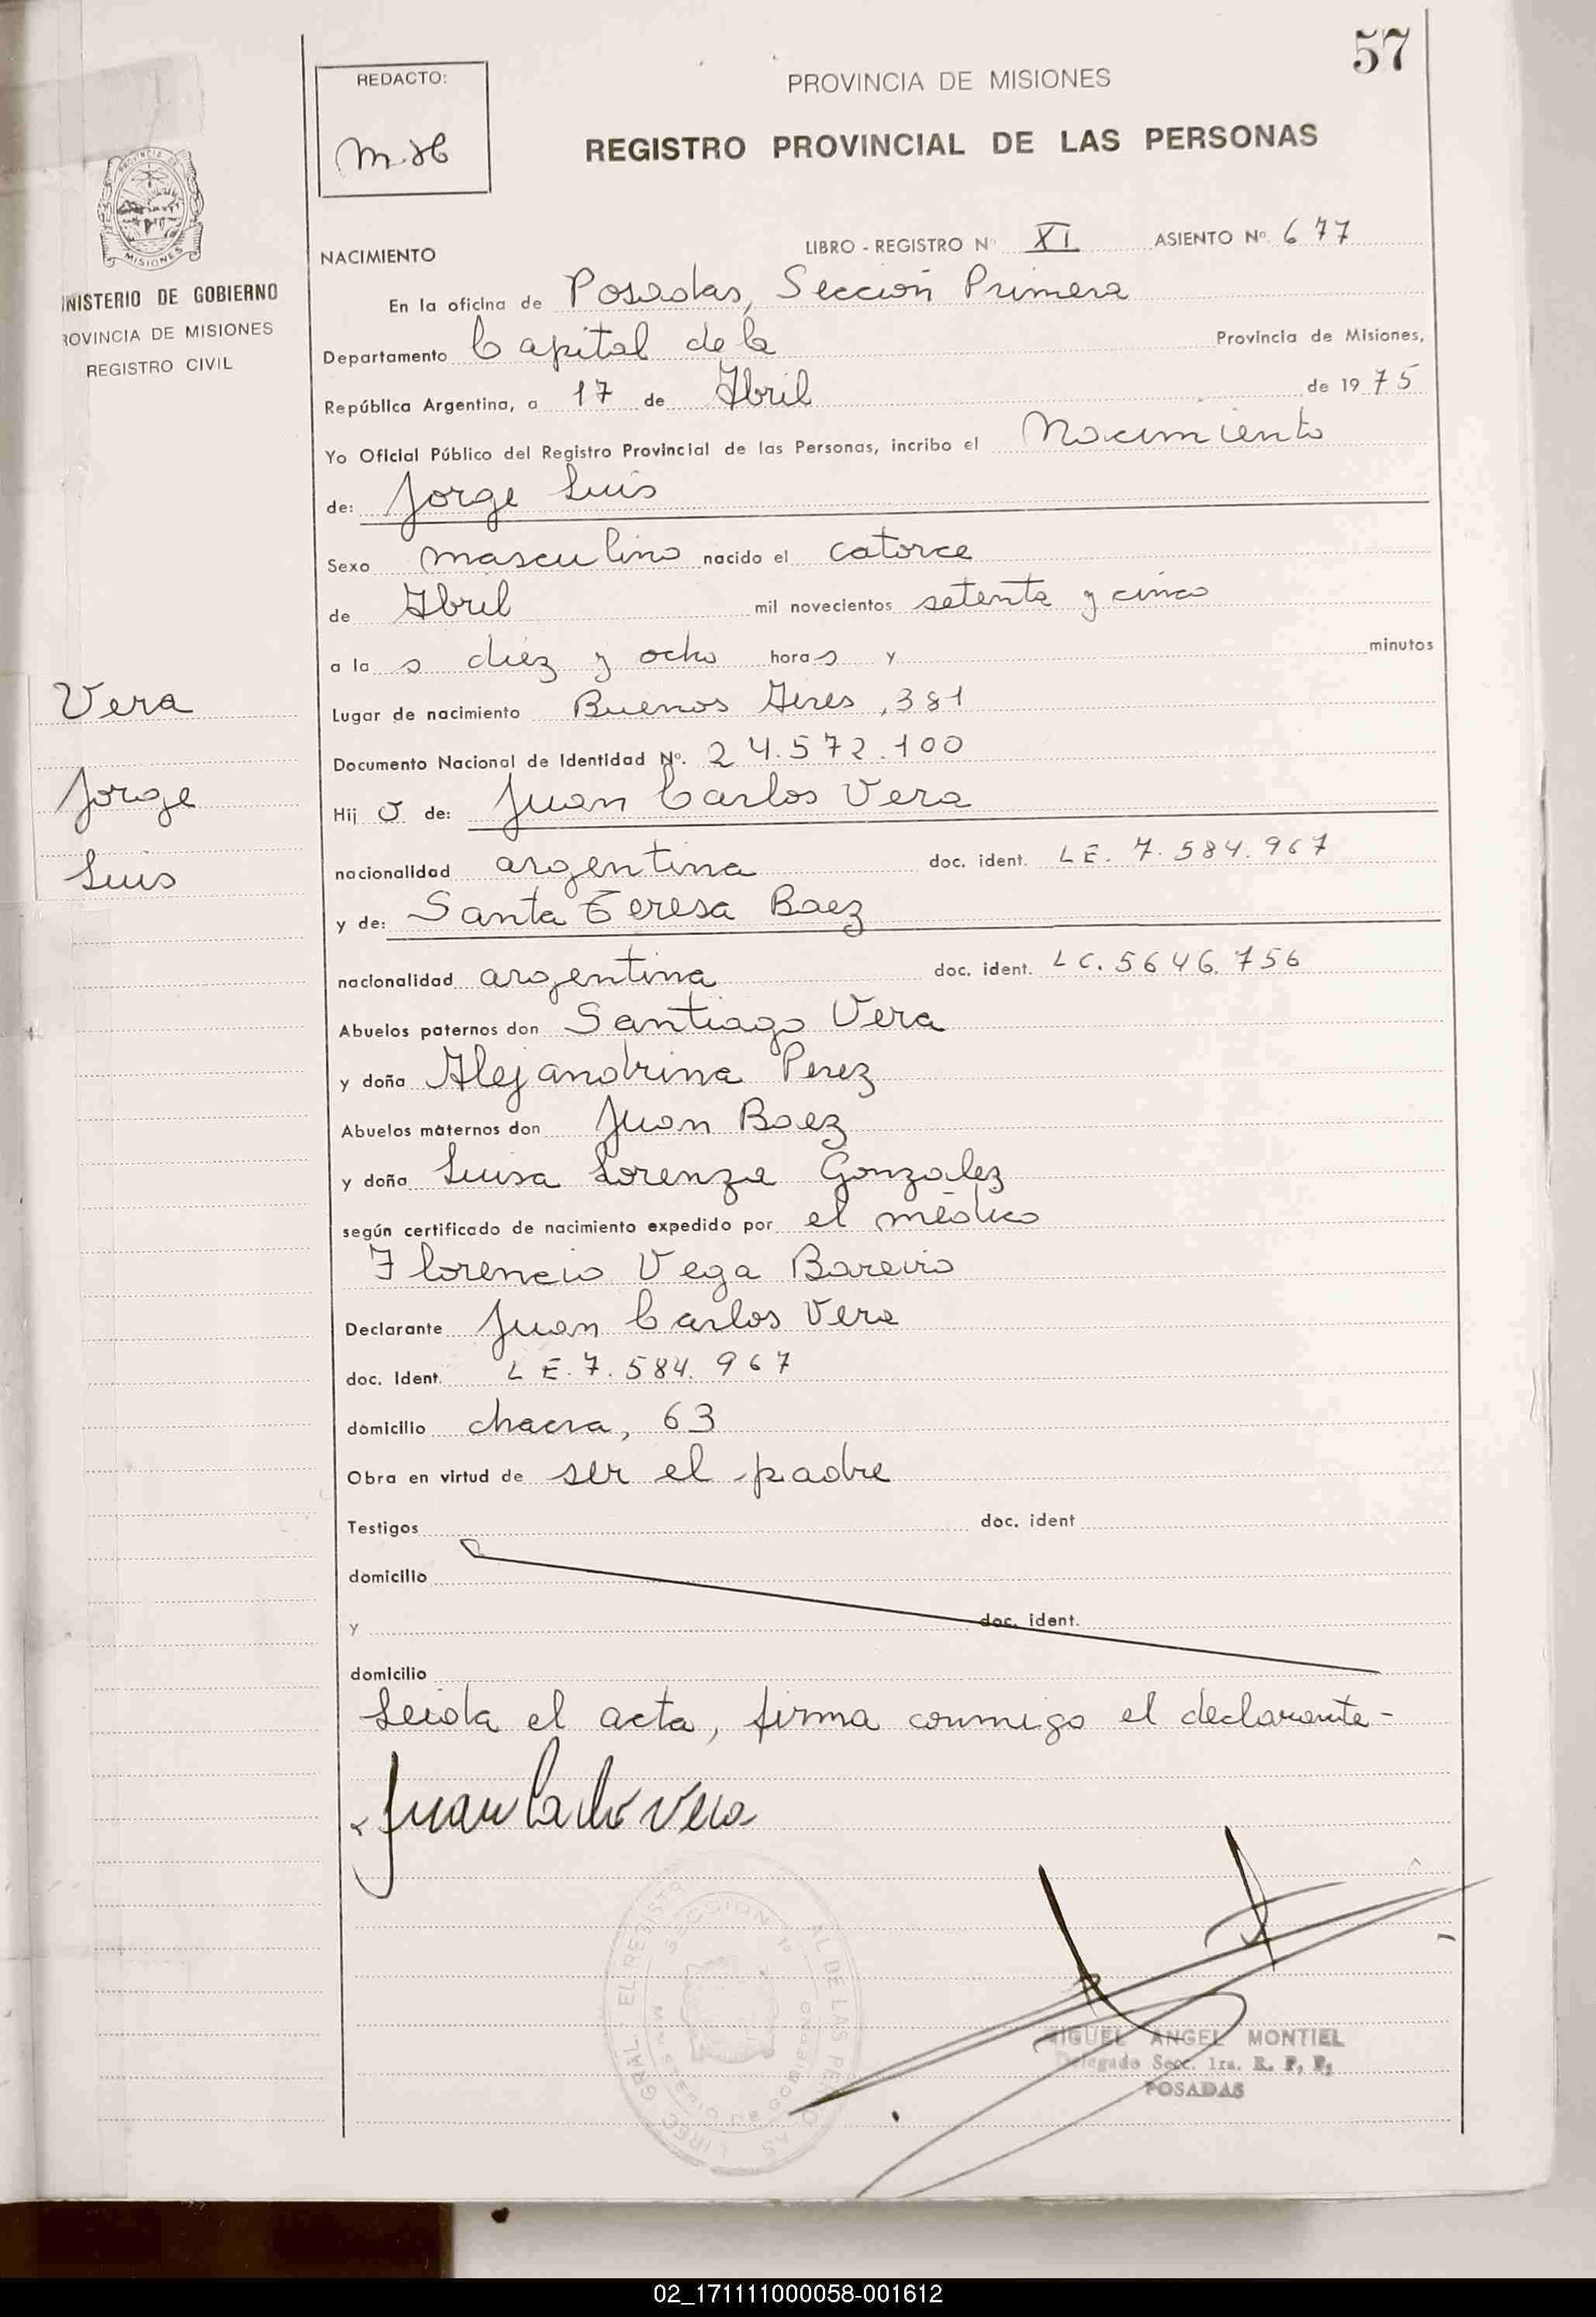 57
REDACTO:
PROVINCIA DE MISIONES
REGISTRO PROVINCIAL DE LAS PERSONAS
PROVINCIA DE
MISIONES
INISTERIO DE GOBIERNO
ROVINCIA DE MISIONES
REGISTRO CIVIL
NACIMIENTO LIBRO - REGISTRO Nº XI ASIENTO Nº 677
En la oficina de Posadas, Sección Primera
Departamento Capital de la Provincia de Misiones,
República Argentina, a 17 de Abril de 1975
Yo Oficial Público del Registro Provincial de las Personas, incribo el Nacimiento
de: Jorge Luis
Sexo masculino nacido el catorce
de Abril mil novecientos setenta y cinco
a la s diez y ocho hora s y minutos
Lugar de nacimiento Buenos Aires, 381
Documento Nacional de Identidad Nº. 24.572.100
Hij o de: Juan Carlos Vera
nacionalidad argentina doc. ident. LE. 7.584.967
y de: Santa Teresa Baez
nacionalidad argentina doc. ident. LC. 5646.756
Abuelos paternos don Santiago Vera
y doña Alejandrina Perez
Abuelos maternos don Juan Baez
y doña Luisa Lorenza Gonzalez
según certificado de nacimiento expedido por el médico
Florencio Vega Bareiro
Declarante Juan Carlos Vera
doc. Ident. LE. 7.584.967
domicilio chacra, 63
Obra en virtud de ser el padre
Testigos doc. ident
domicilio
y doc. ident.
domicilio
Leida el acta, firma conmigo el declarante-
Juan Carlos Vera
Vera
Jorge
Luis
MIGUEL ANGEL MONTIEL
Delegado Secc. 1ra. R. P. P.
POSADAS
02_171111000058-001612